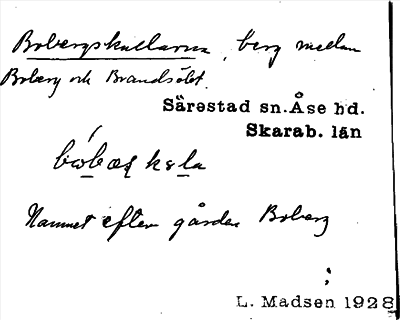 Bobergskullarna, berg mellan
Boberg och Brandsölet.
Särestad sn. Åse hd.
Skarab. län
Namnet efter gården Boberg
L. Madsen 1928